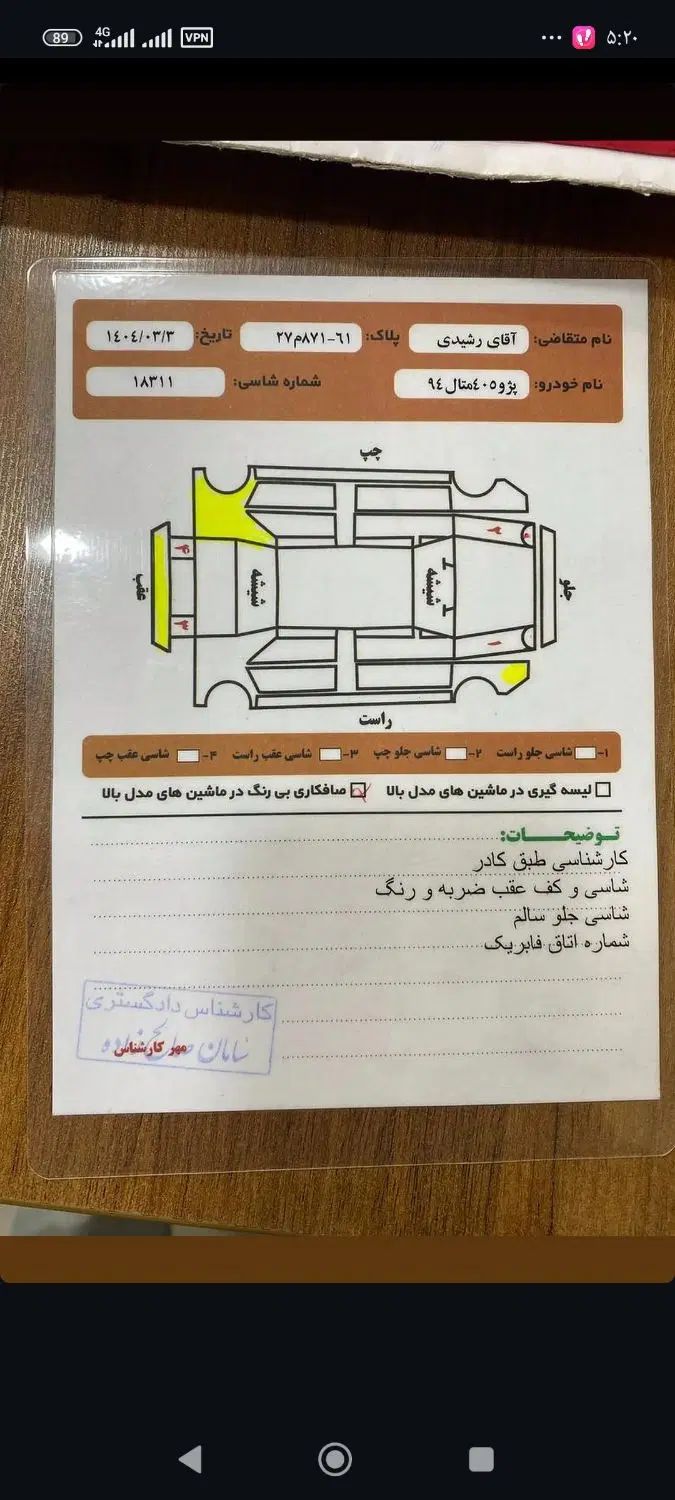 89 4G VPN ۵:۲۰
نام متقاضی: آقای رشیدی پلاک: ٦١-٨٧١م٢٧ تاریخ: ١٤٠٤/٠٣/٣
نام خودرو: پژو٤٠٥متال٩٤ شماره شاسی: ١٨٣١١
چپ
۴ ۲
عقب شیشه شیشه جلو
۳ ۱
راست
۱- شاسی جلو راست ۲- شاسی جلو چپ ۳- شاسی عقب راست ۴- شاسی عقب چپ
لیسه گیری در ماشین های مدل بالا صافکاری بی رنگ در ماشین های مدل بالا
توضیحــات:
کارشناسی طبق کادر
شاسی و کف عقب ضربه و رنگ
شاسی جلو سالم
شماره اتاق فابریک
کارشناس دادگستری
سامان
مهر کارشناس